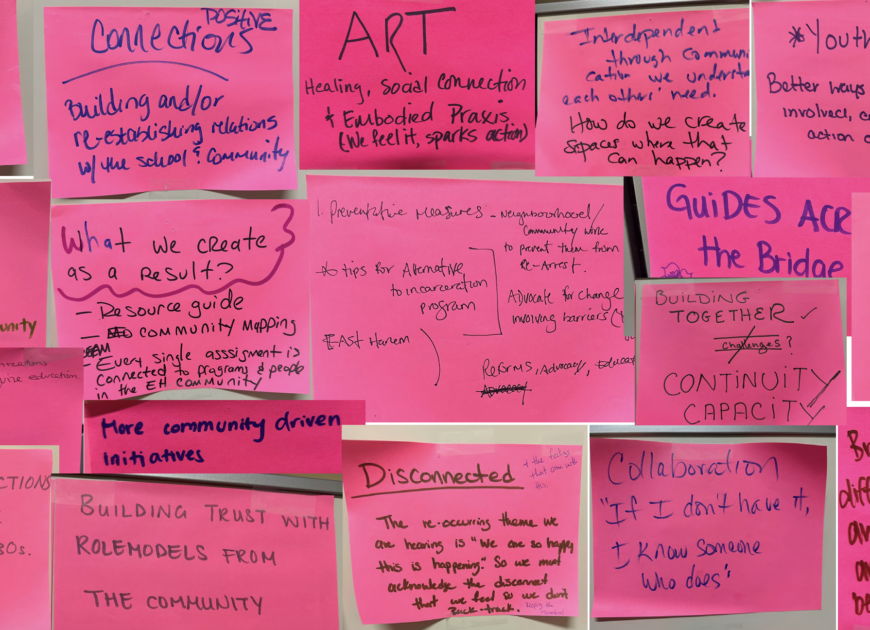 POSITIVE
Connections
Building and/or
re-establishing relations
w/the school & community
ART
Healing, Social Connection
& Embodied Praxis
(We feel it, sparks action)
Interdependent
through Communi
cation we understa
each others' need.
How do we create
spaces where that
can happen?
*Youth
Better ways
involved, c
action
What we create
as a result?
- Resource guide
- COMMUNITY MAPPING
- Every single asssigment is
connected to programs & people
in the EH COMMUNITY
1. Preventative Measures - Neighbourhood/
Community work
to prevent them from
Re-Arrest.
* 6 tips for Alternative
to incarceration
program
Advocate for change
involving barriers
East Harlem
Reforms, Advocacy, Educat
Advocacy
GUIDES ACR
the Bridge
BUILDING
TOGETHER ✓
challenges?
CONTINUITY
CAPACITY
unity
quire education.
More community driven
initiatives
CTIONS
30s.
BUILDING TRUST WITH
ROLEMODELS FROM
THE COMMUNITY
Disconnected
+ the fatigue
that come with
this
The re-occurring theme we
are hearing is "We are so happy
this is happening." So we must
acknowledge the disconnect
that we feel so we don't
Back-track.
Collaboration
"If I don't have it,
I know someone
who does"
diff
be